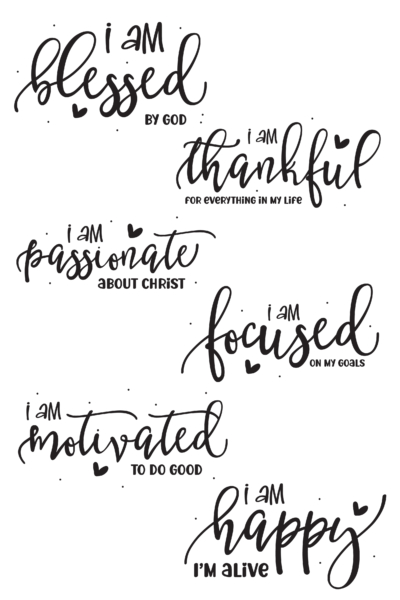 i AM
blessed
BY GOD
i AM
thankful
FOR EVERYTHING IN MY LIFE
i AM
passionate
ABOUT CHRIST
i AM
focused
ON MY GOALS
i AM
motivated
TO DO GOOD
i AM
happy
I'M ALIVE